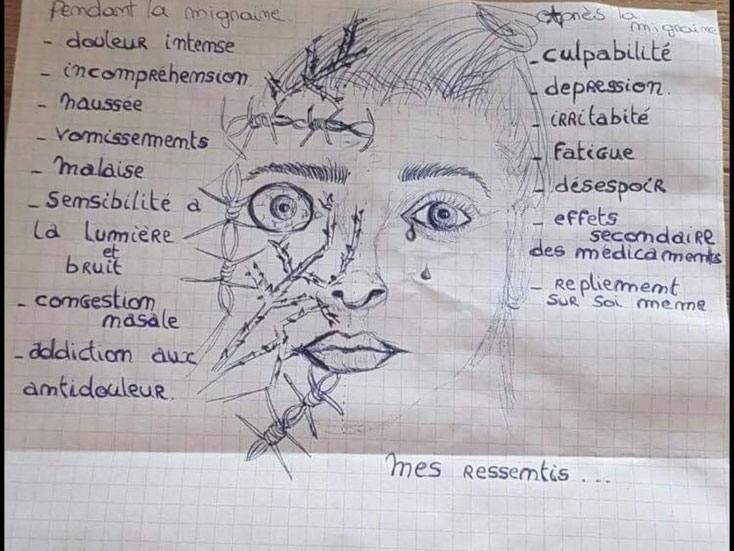 Pendant la mignaine.
- douleur intense
- incompréhension
- naussée
- vomissements
- malaise
- sensibilité a
la lumière
et
bruit
- congestion
nasale
- addiction aux
antidouleur.
après la
mignaine
- culpabilité
- depression.
- irritabité
- Fatigue
- désespoir
- effets
secondaire
des médicaments
- repliement
sur soi meme
mes ressentis...